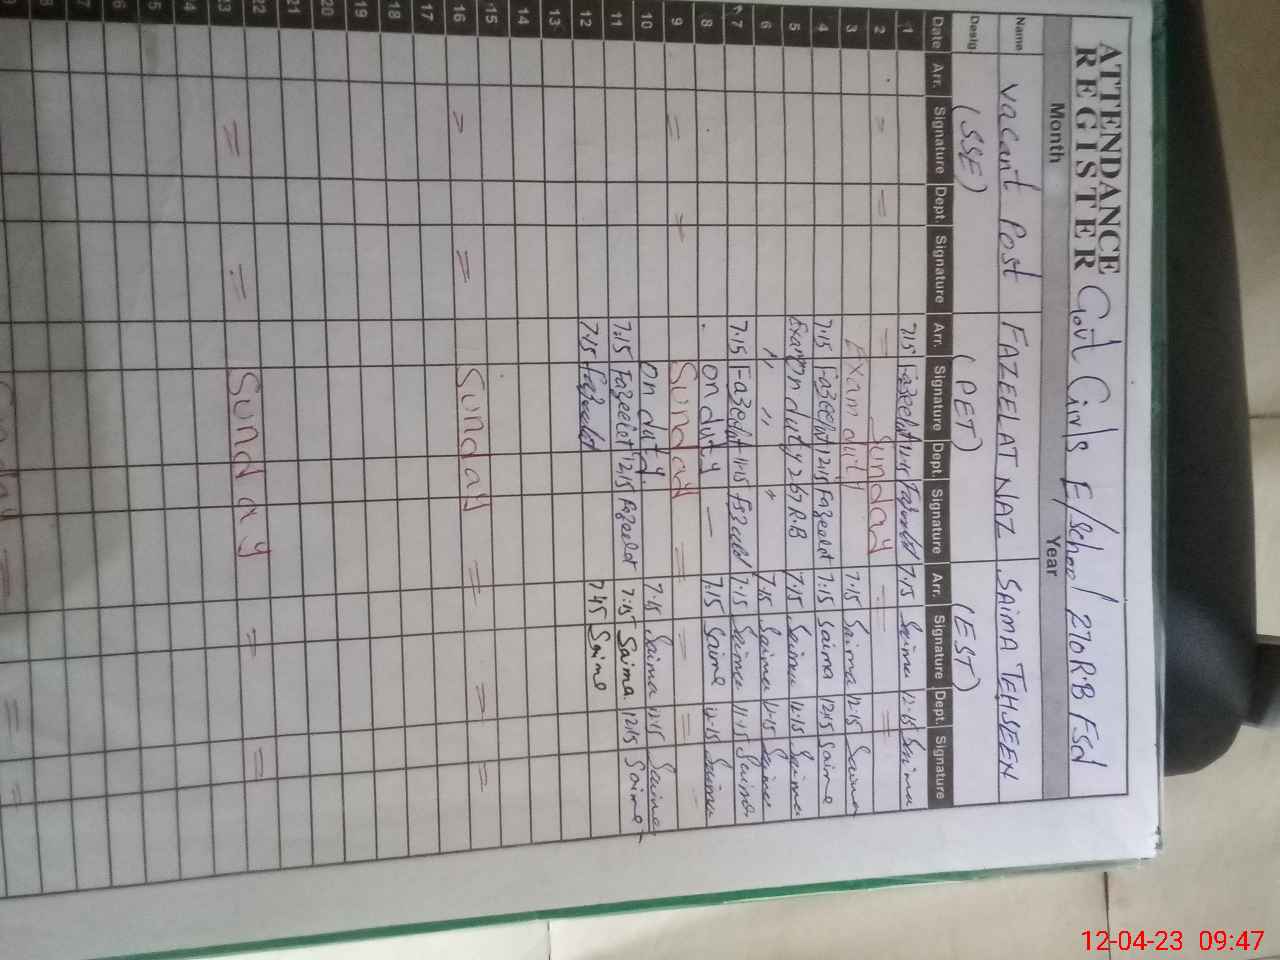 ATTENDANCE
REGISTER Govt Girls E/School 270 R.B Fsd
Month Year
Name Vacant Post FAZEELAT NAZ SAIMA TEHSEEN
Desig. (SSE) (PET) (EST)
Date Arr. Signature Dept. Signature Arr. Signature Dept. Signature Arr. Signature Dept. Signature
1 7:15 Fazeelat Fazeelat 7:15 Saima 12:15 Saima
2 = Sunday = =
3 Exam duty 7:15 Saima 12:15 Saima
4 7:15 Fazeelat 12:15 Fazeelat 7:15 Saima 12:15 Saima
5 Exam on duty 267 R.B 7:15 Saima 12:15 Saima
6 〃 〃 〃 7:15 Saima 12:15 Saima
7 7:15 Fazeelat 11:15 Fazeelat 7:15 Saima 11:15 Saima
8 on duty — 7:15 Saima 12:15 Saima
9 = Sunday = = =
10 on duty 7:15 Saima 12:15 Saima
11 7:15 Fazeelat 12:15 Fazeelat 7:15 Saima 12:15 Saima
12 7:15 Fazeelat 7:45 Saima
13
14
15
16 = Sunday = = =
17
18
19
20
21
22
23 = = Sunday = =
12-04-23 09:47